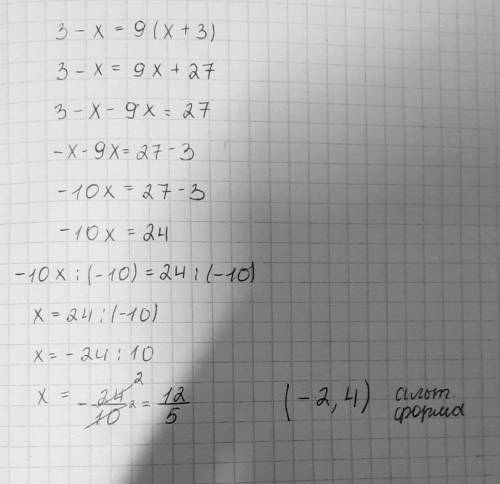 3 - x = 9 (x + 3)
3 - x = 9x + 27
3 - x - 9x = 27
-x - 9x = 27 - 3
-10x = 27 - 3
-10x = 24
-10x : (-10) = 24 : (-10)
x = 24 : (-10)
x = - 24 : 10
x = - 24/10 2 2 = 12/5 (-2,4) альт.
форма